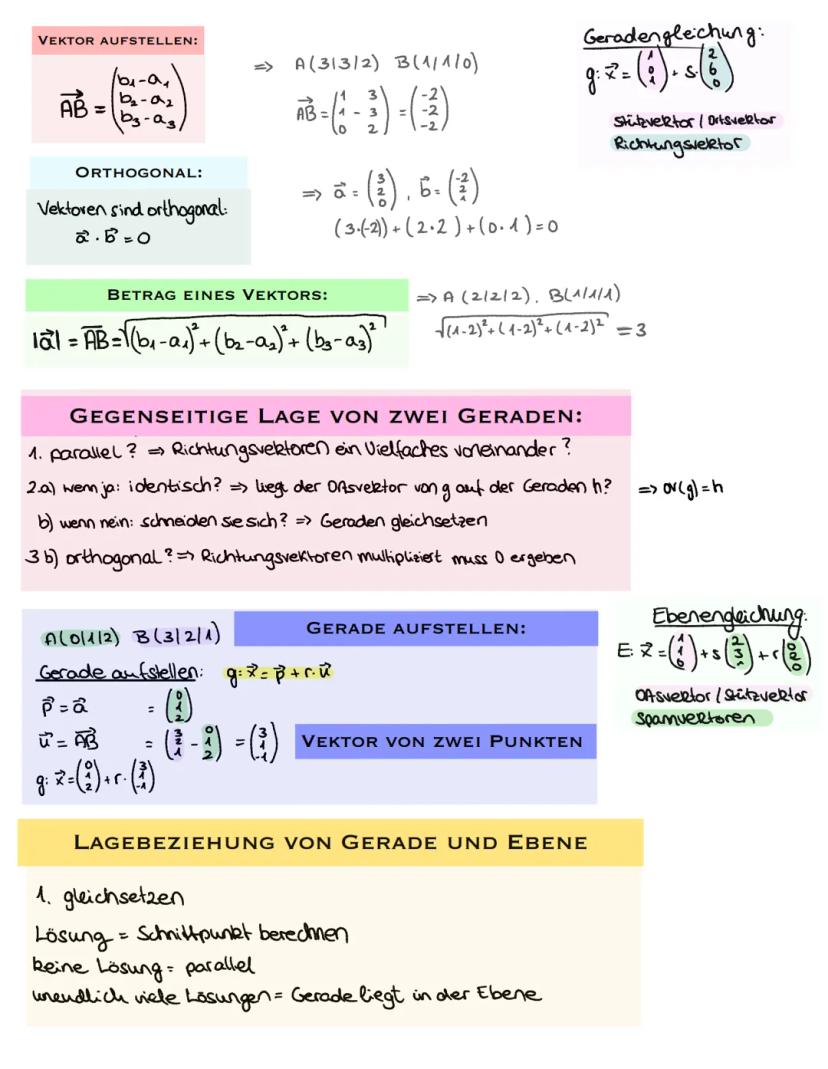 VEKTOR AUFSTELLEN:
AB = (b₁-a₁ b₂-a₂ b₃-a₃)
=> A(3|3|2) B(1/1/0)
AB = (1 1 0 - 3 3 2) = (-2 -2 -2)
Geradengleichung:
g: x = (1 0 1) + s·(2 6 0)
Stützvektor / Ortsvektor
Richtungsvektor
ORTHOGONAL:
Vektoren sind orthogonal:
a · b = 0
=> a = (3 2 0) , b = (-2 2 1)
(3·(-2)) + (2·2) + (0·1) = 0
BETRAG EINES VEKTORS:
|a| = AB = √(b₁-a₁)² + (b₂-a₂)² + (b₃-a₃)²
=> A (2|2|2) , B(1/1/1)
√(1-2)² + (1-2)² + (1-2)² = 3
GEGENSEITIGE LAGE VON ZWEI GERADEN:
1. parallel? => Richtungsvektoren ein Vielfaches voneinander?
2.a) wenn ja: identisch? => liegt der Ortsvektor von g auf der Geraden h? => OV(g) = h
b) wenn nein: schneiden sie sich? => Geraden gleichsetzen
3 b) orthogonal? => Richtungsvektoren multipliziert muss 0 ergeben
A(0|1|2) B(3|2|1)
GERADE AUFSTELLEN:
Gerade aufstellen: g: x = p + r·u
p = a = (0 1 2)
u = AB = (3 2 1 - 0 1 2) = (3 1 -1)
VEKTOR VON ZWEI PUNKTEN
g: x = (0 1 2) + r·(3 1 -1)
Ebenengleichung:
E: x = (1 1 6) + s(2 3 1) + r(0 2 0)
Ortsvektor / Stützvektor
Spannvektoren
LAGEBEZIEHUNG VON GERADE UND EBENE
1. gleichsetzen
Lösung = Schnittpunkt berechnen
keine Lösung = parallel
unendlich viele Lösungen = Gerade liegt in der Ebene